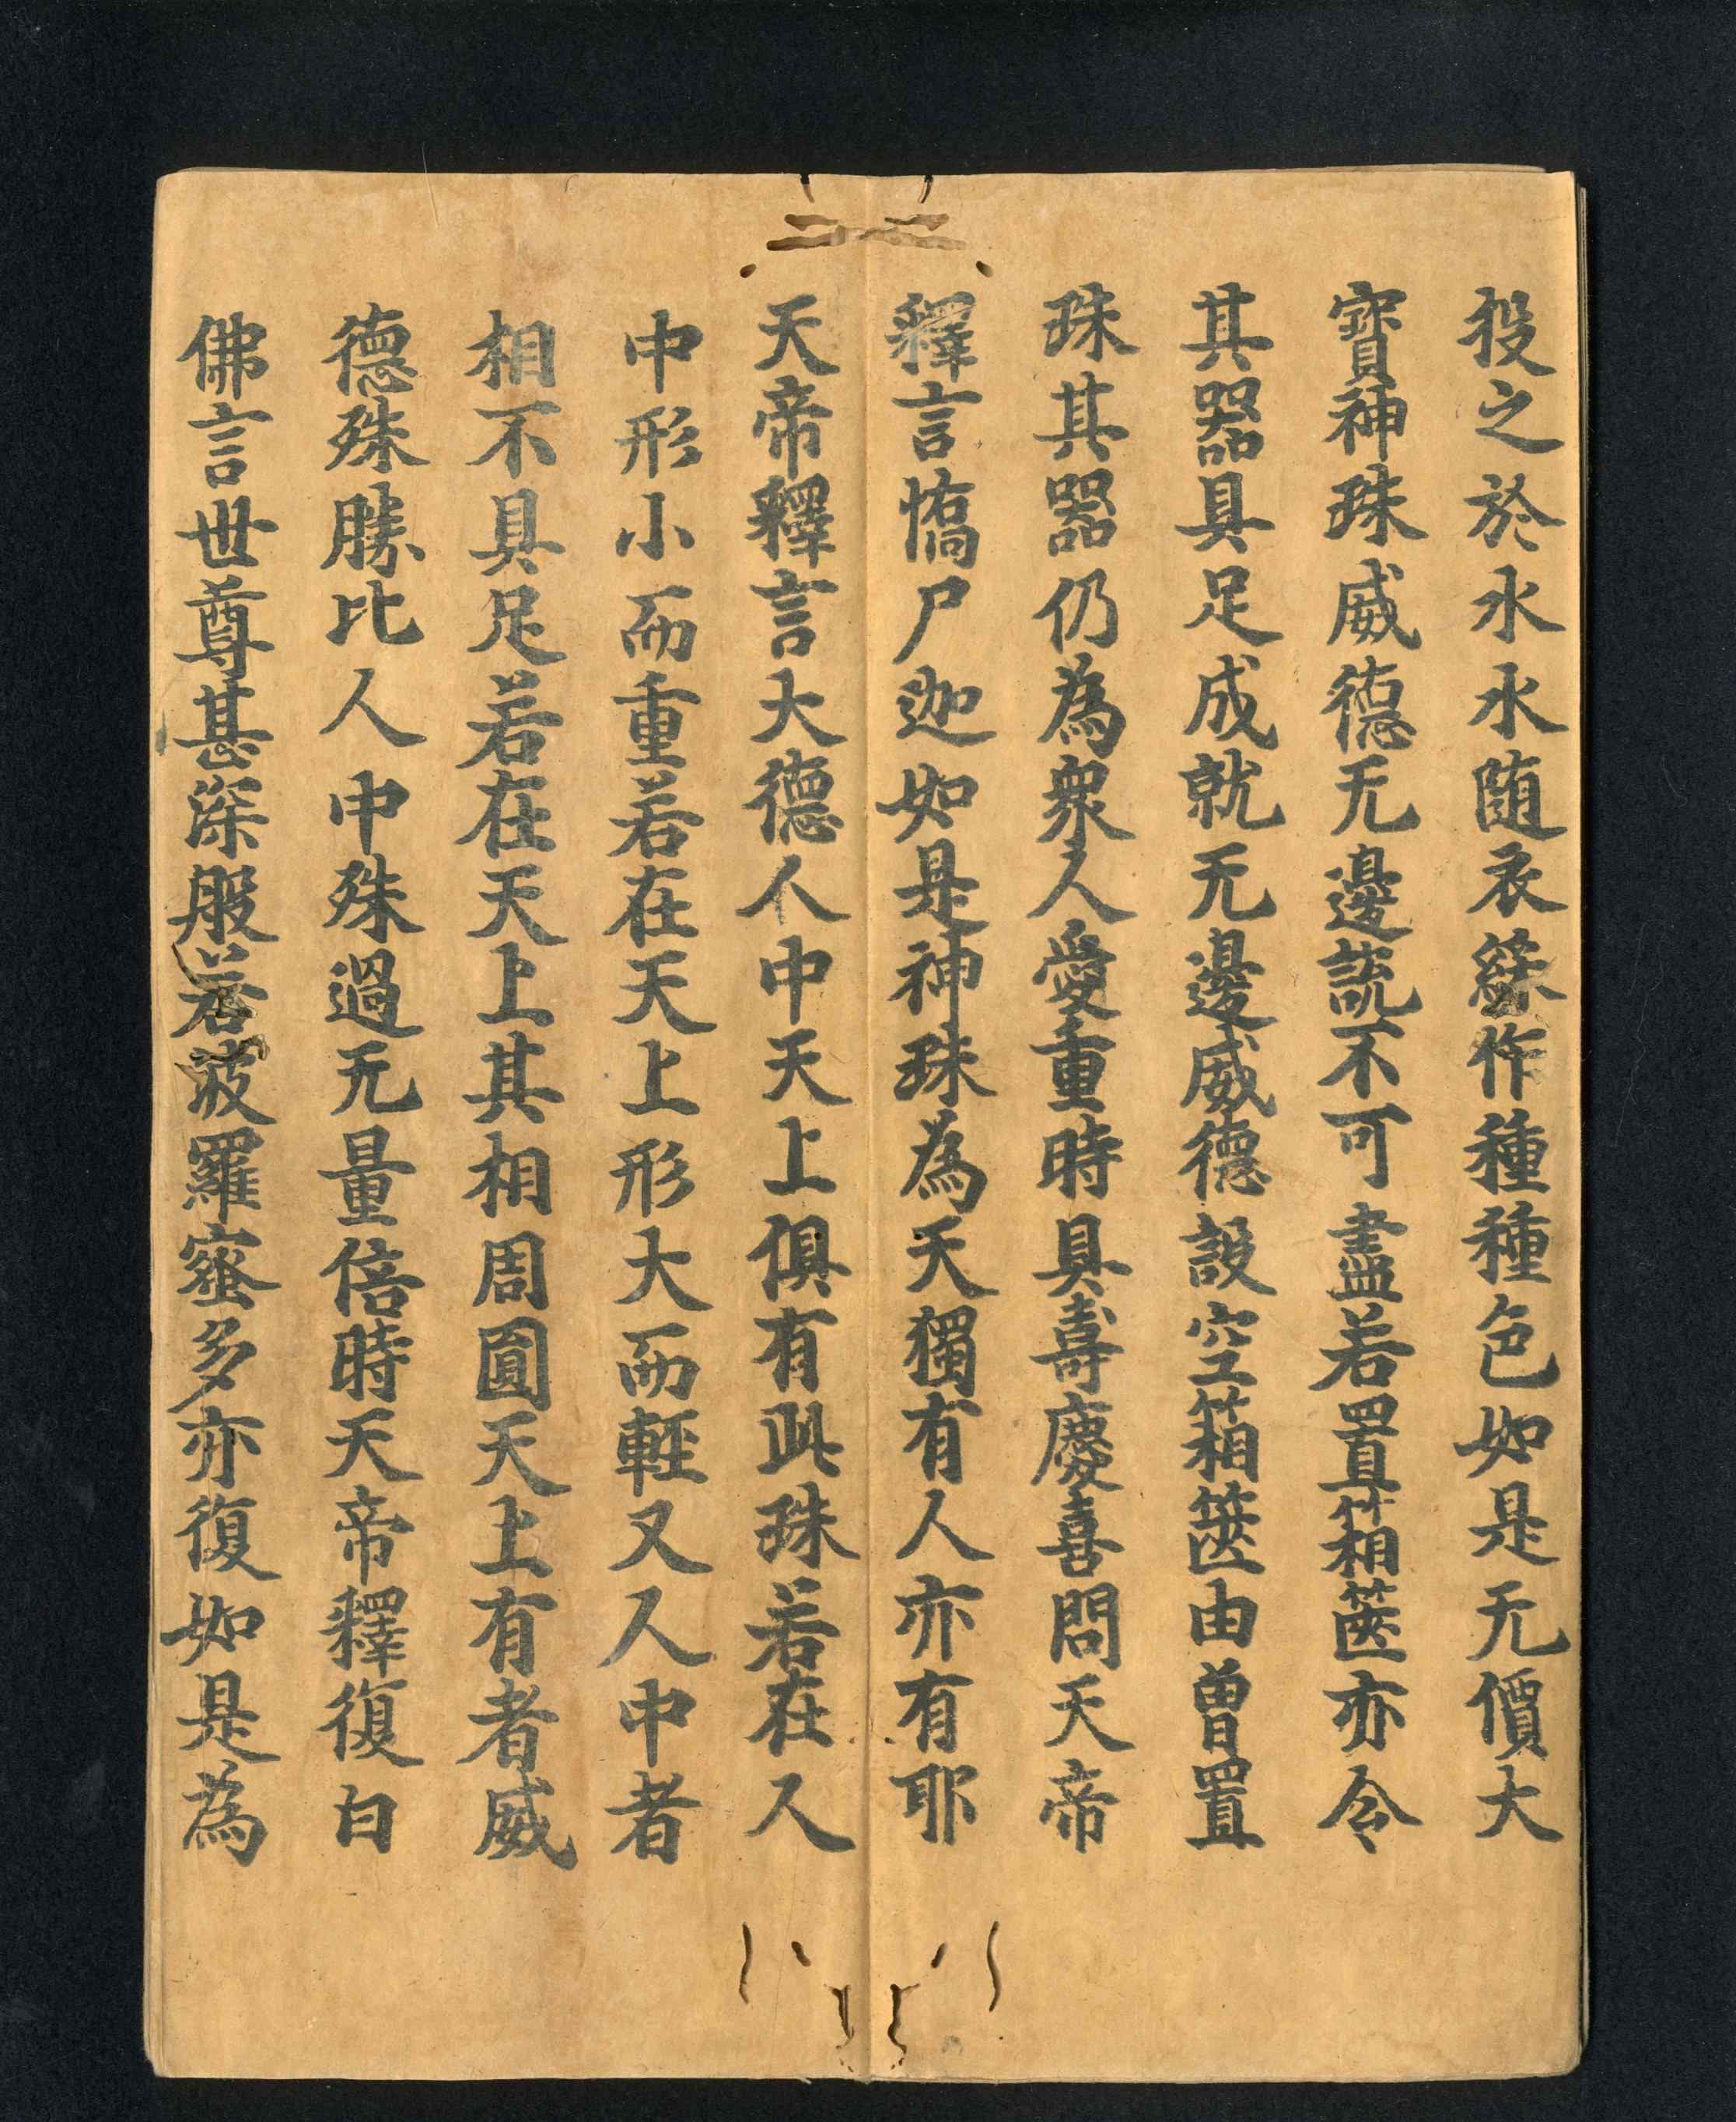 投之於水水随衣綵作種種色如是无價大
寶神珠威德无邊說不可盡若置箱篋亦令
其器具足成就无邊威德設空箱篋由曽置
珠其器仍為衆人愛重時具壽慶喜問天帝
釋言憍尸迦如是神珠為天獨有人亦有耶
天帝釋言大德人中天上俱有此珠若在人
中形小而重若在天上形大而輕又人中者
相不具足若在天上其相周圓天上有者威
德殊勝比人中殊過无量倍時天帝釋復白
佛言世尊甚深般若波羅蜜多亦復如是為